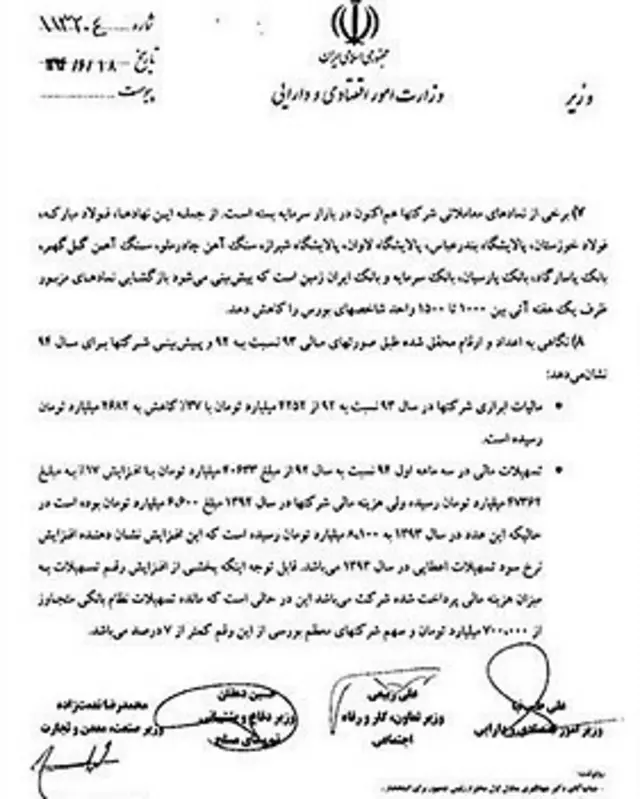 شماره ... ۱۱۳۲۰۶
تاریخ
پیوست
جمهوری اسلامی ایران
وزارت امور اقتصادی و دارایی
وزیر
۷) برخی از نمادهای معاملاتی شرکتها هم‌اکنون در بازار سرمایه بسته است. از جمله این نهادها، فولاد مبارکه،
فولاد خوزستان، پالایشگاه بندرعباس، پالایشگاه لاوان، پالایشگاه شیراز، سنگ آهن چادرملو، سنگ آهن گل‌گهر،
بانک پاسارگاد، بانک پارسیان، بانک سرمایه و بانک ایران زمین است که پیش‌بینی می‌شود بازگشایی نمادهای مزبور
ظرف یک هفته آتی بین ۱۰۰۰ تا ۱۵۰۰ واحد شاخصهای بورس را کاهش دهد.
۸) نگاهی به اعداد و ارقام محقق شده طبق صورتهای مالی ۹۳ نسبت به ۹۲ و پیش‌بینی شرکتها برای سال ۹۴
نشان می‌دهد:
• مالیات ابرازی شرکتها در سال ۹۳ نسبت به ۹۲ از ۴۲۵۲ میلیارد تومان با ۳۷٪ کاهش به ۲۶۸۲ میلیارد تومان
رسیده است.
• تسهیلات مالی در سه ماهه اول ۹۴ نسبت به سال ۹۲ از مبلغ ۴۰۶۳۳ میلیارد تومان با افزایش ۱۷٪ به مبلغ
۴۷۳۶۲ میلیارد تومان رسیده ولی هزینه مالی شرکتها در سال ۱۳۹۲ مبلغ ۶,۶۰۰ میلیارد تومان بوده است در
حالیکه این عدد در سال ۱۳۹۳ به ۸,۱۰۰ میلیارد تومان رسیده است که این افزایش نشان دهنده افزایش
نرخ سود تسهیلات اعطایی در سال ۱۳۹۳ می‌باشد. قابل توجه اینکه بخشی از افزایش رقم تسهیلات به
میزان هزینه مالی پرداخت شده شرکت می‌باشد این در حالی است که مانده تسهیلات نظام بانکی متجاوز
از ۷۰۰,۰۰۰ میلیارد تومان و سهم شرکتهای معظم بورسی از این رقم کمتر از ۷ درصد می‌باشد.
علی طیب‌نیا
وزیر امور اقتصادی و دارایی
علی ربیعی
وزیر تعاون، کار و رفاه
اجتماعی
حسین دهقان
وزیر دفاع و پشتیبانی
نیروهای مسلح
محمدرضا نعمت‌زاده
وزیر صنعت، معدن و تجارت
رونوشت: